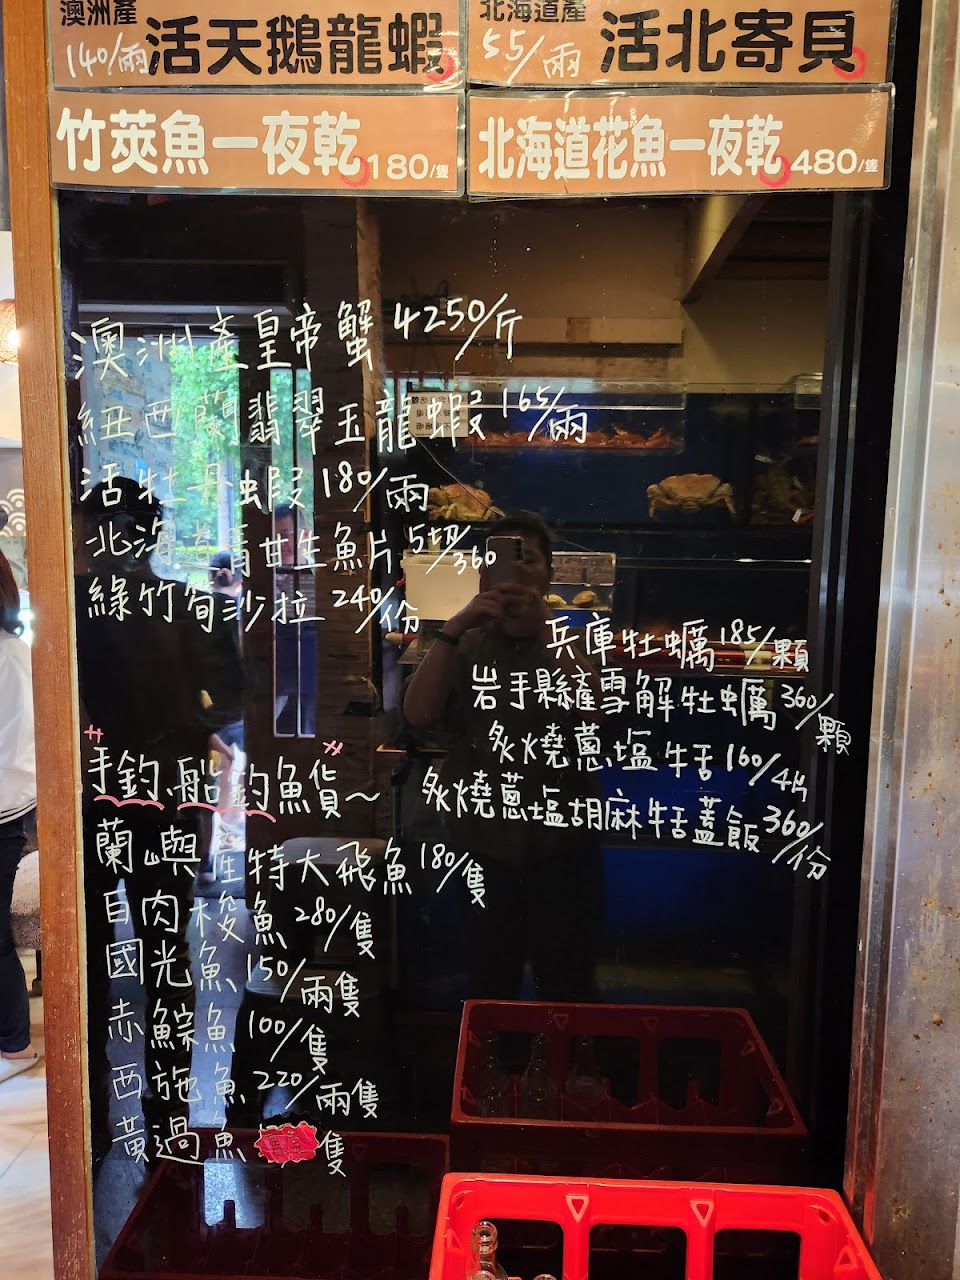 澳洲產
140/兩 活天鵝龍蝦
北海道產
55/兩 活北寄貝
竹莢魚一夜乾 180/隻
北海道花魚一夜乾 480/隻
澳洲產皇帝蟹 4250/斤
紐西蘭翡翠玉龍蝦 165/兩
活牡丹蝦 180/兩
北海道青甘生魚片 5切/360
綠竹筍沙拉 240/份
兵庫牡蠣 185/顆
岩手縣產雪解牡蠣 360/顆
炙燒蔥塩牛舌 160/4片
炙燒蔥塩胡麻牛舌蓋飯 360/份
手釣.船釣魚貨~
蘭嶼產特大飛魚 180/隻
白肉梭魚 280/隻
國光魚 150/兩隻
赤鯮魚 100/隻
西施魚 220/兩隻
黃過魚 售完 隻